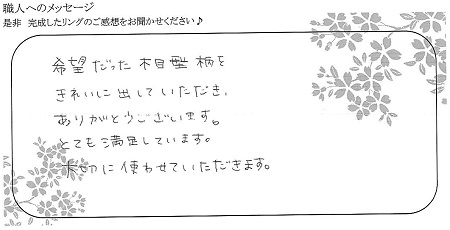 職人へのメッセージ
是非 完成したリングのご感想をお聞かせください♪
希望だった木目型柄を
きれいに出していただき、
ありがとうございます。
とても満足しています。
大切に使わせていただきます。